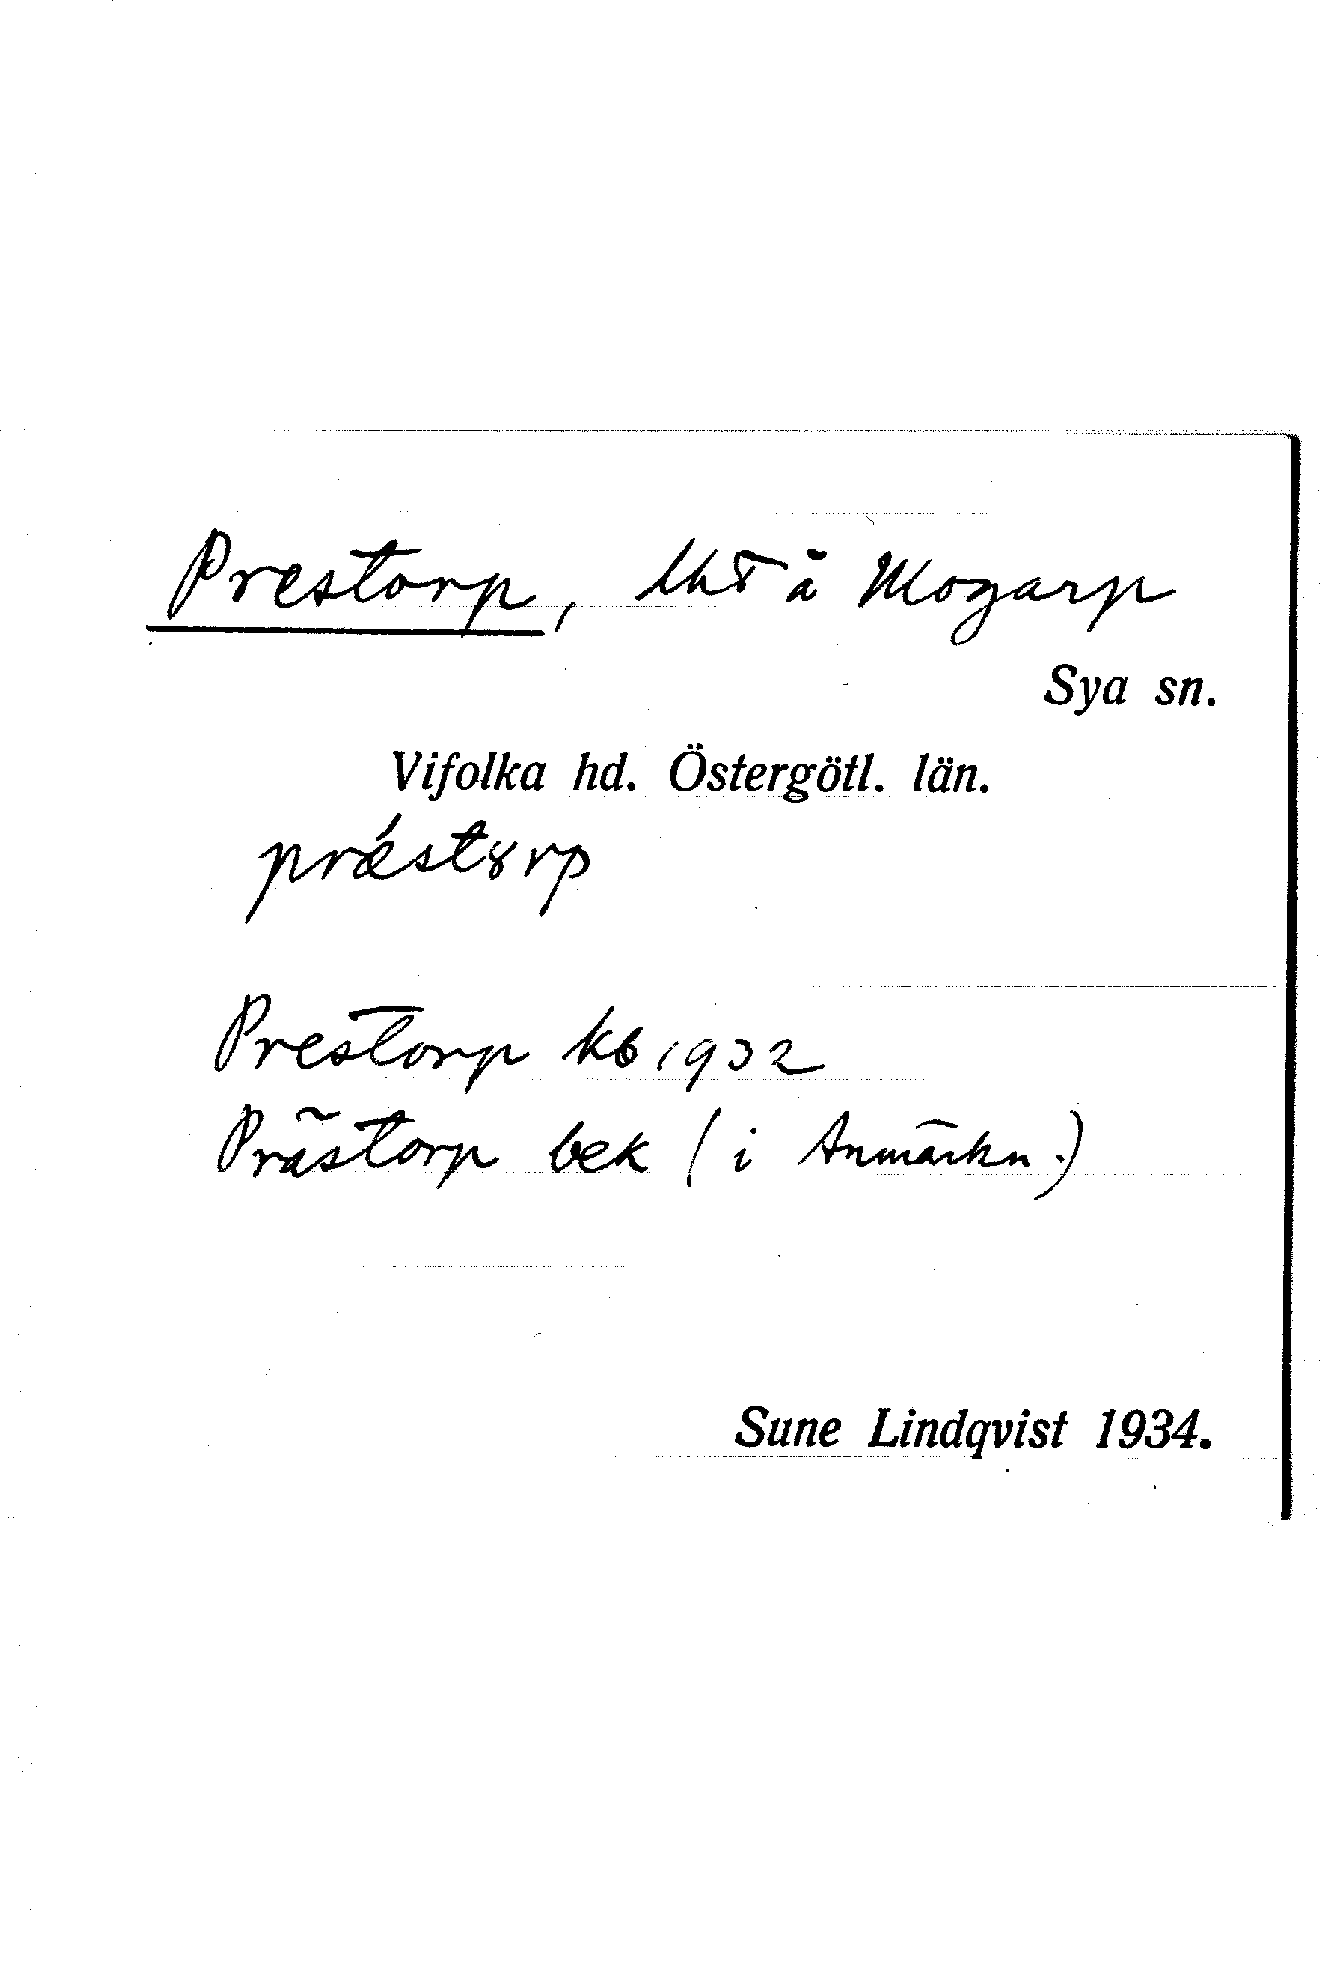 Prestorp, lht å Mogarp
Sya sn.
Vifolka hd. Östergötl. län.
prǽstȣrp
Prestorp kb 1932
Prästorp bek (i Anmärkn.)
Sune Lindqvist 1934.